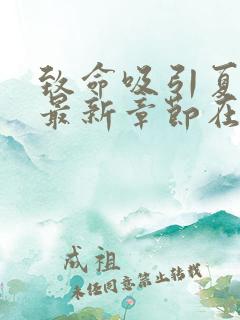 致命吸引夏
最新章节在
成祖
未经同意禁止转载